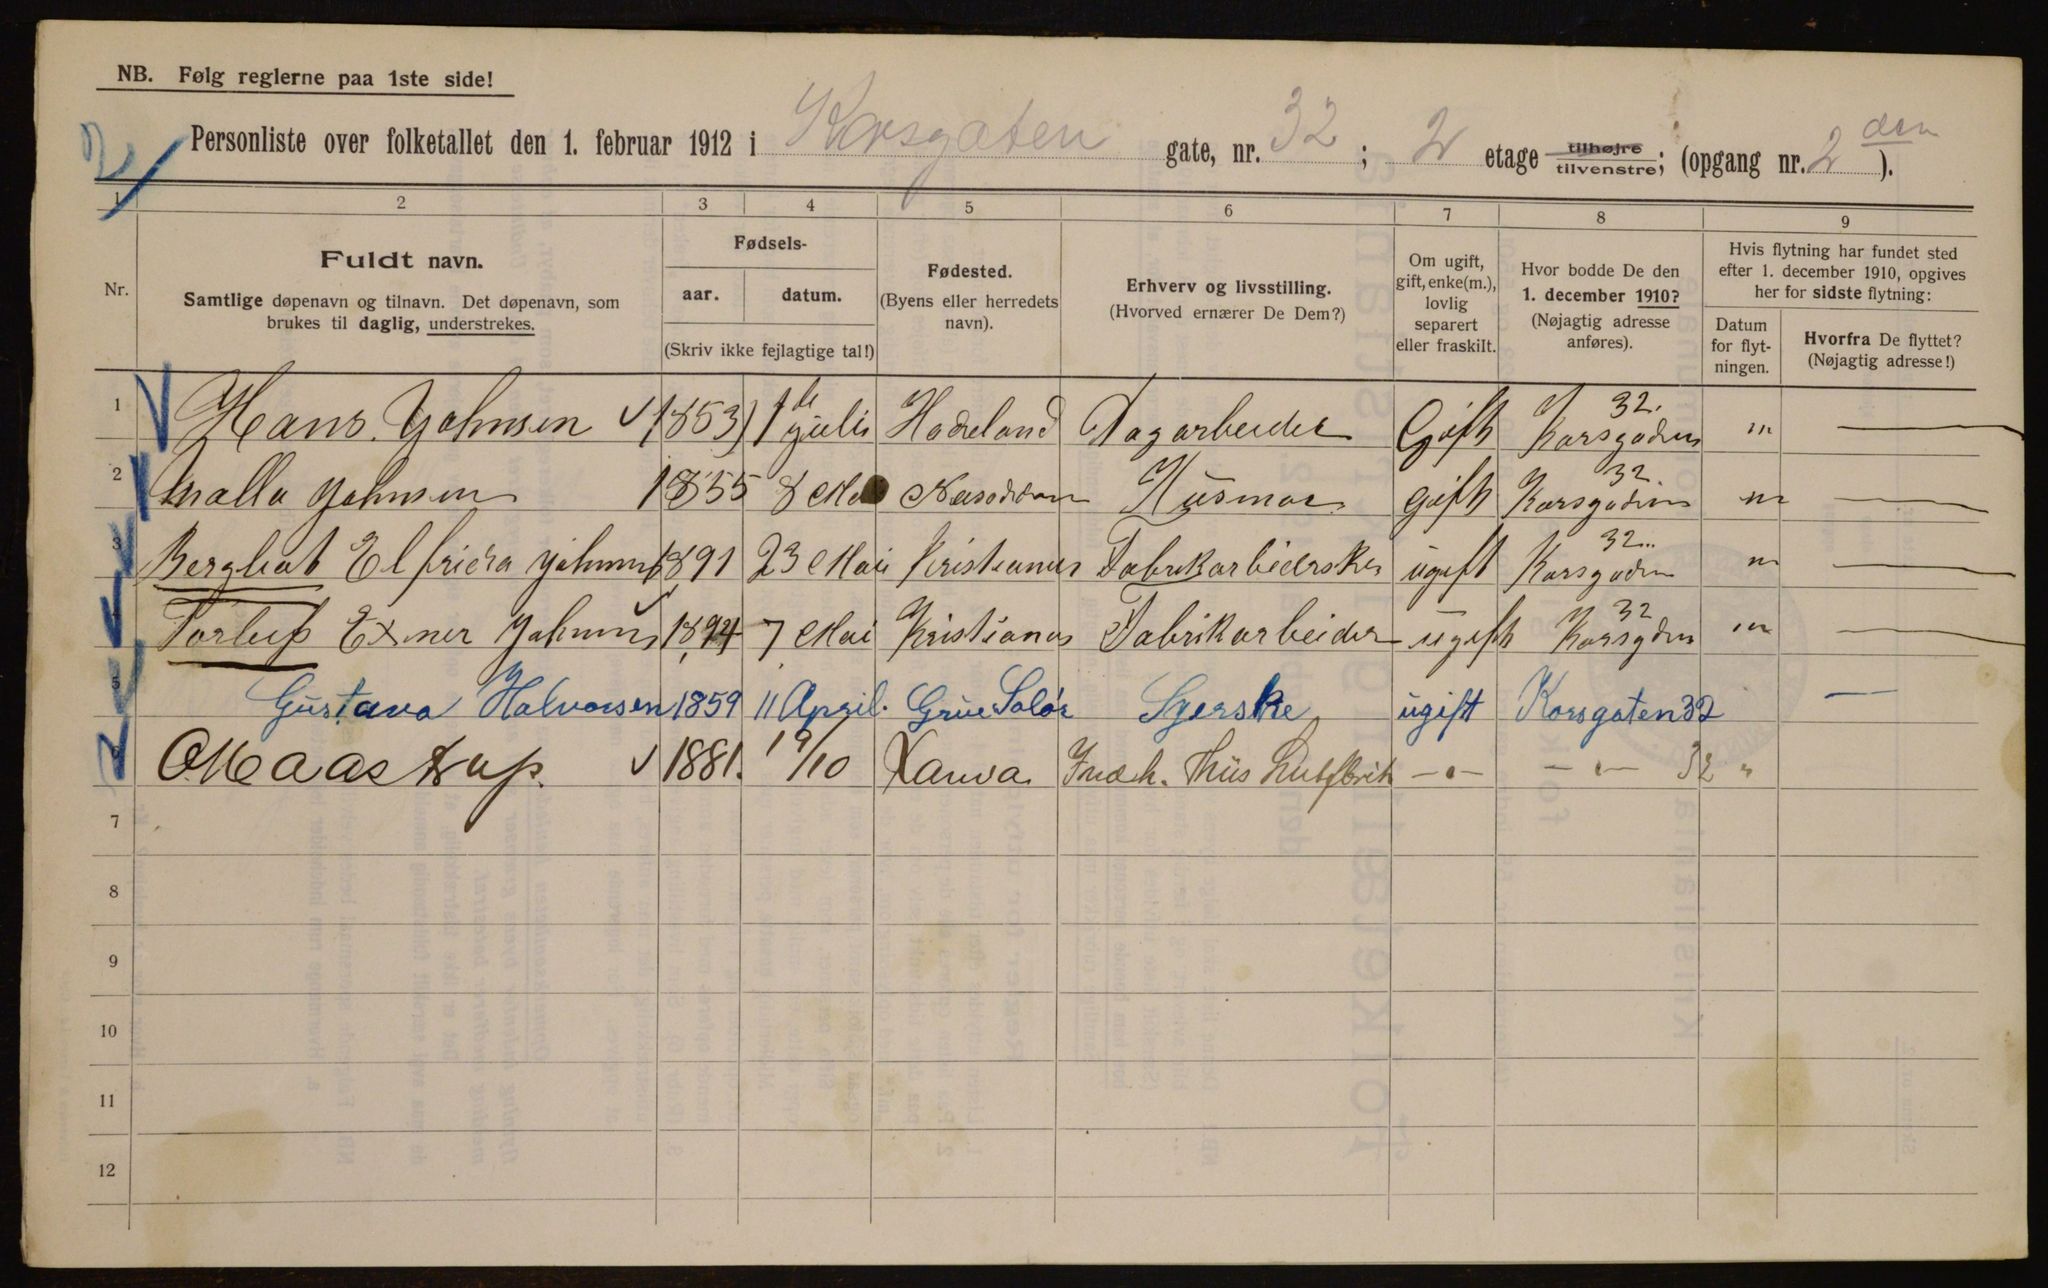 NB. Følg reglerne paa 1ste side!
Personliste over folketallet den 1. februar 1912 i Korsgaten gate, nr. 32 ; 2 etage tilhøjre tilvenstre; (opgang nr. 2 den ).
1 2 3 4 5 6 7 8 9
Nr.
Fuldt navn.
Samtlige døpenavn og tilnavn. Det døpenavn, som
brukes til daglig, understrekes.
Fødsels-
aar. datum.
(Skriv ikke fejlagtige tal!)
Fødested.
(Byens eller herredets
navn).
Erhverv og livsstilling.
(Hvorved ernærer De Dem?)
Om ugift,
gift, enke(m.),
lovlig
separert
eller fraskilt.
Hvor bodde De den
1. december 1910?
(Nøjagtig adresse
anføres).
Hvis flytning har fundet sted
efter 1. december 1910, opgives
her for sidste flytning:
Datum
for flyt-
ningen.
Hvorfra De flyttet?
(Nøjagtig adresse!)
1 Hans Johnsen 1853 1de juli Hadeland Dagarbeider Gift Korsgaden 32
2 Johnsen 1855 8 Mai Næsodden Husmor gift Korsgaden 32
3 Elfrida Johnsen 1891 23 Mai Kristiania Fabrikarbeiderske ugift Korsgaden 32
4 Exner Johnsen 1894 7 Mai Kristiania Fabrikarbeider ugift Korsgden 32
5 Gustava Halvorsen 1859 11 April. Grue Solør Syerske ugift Korsgaten 32
6 O Maastrup. 1881. 19/10 32 "
7
8
9
10
11
12